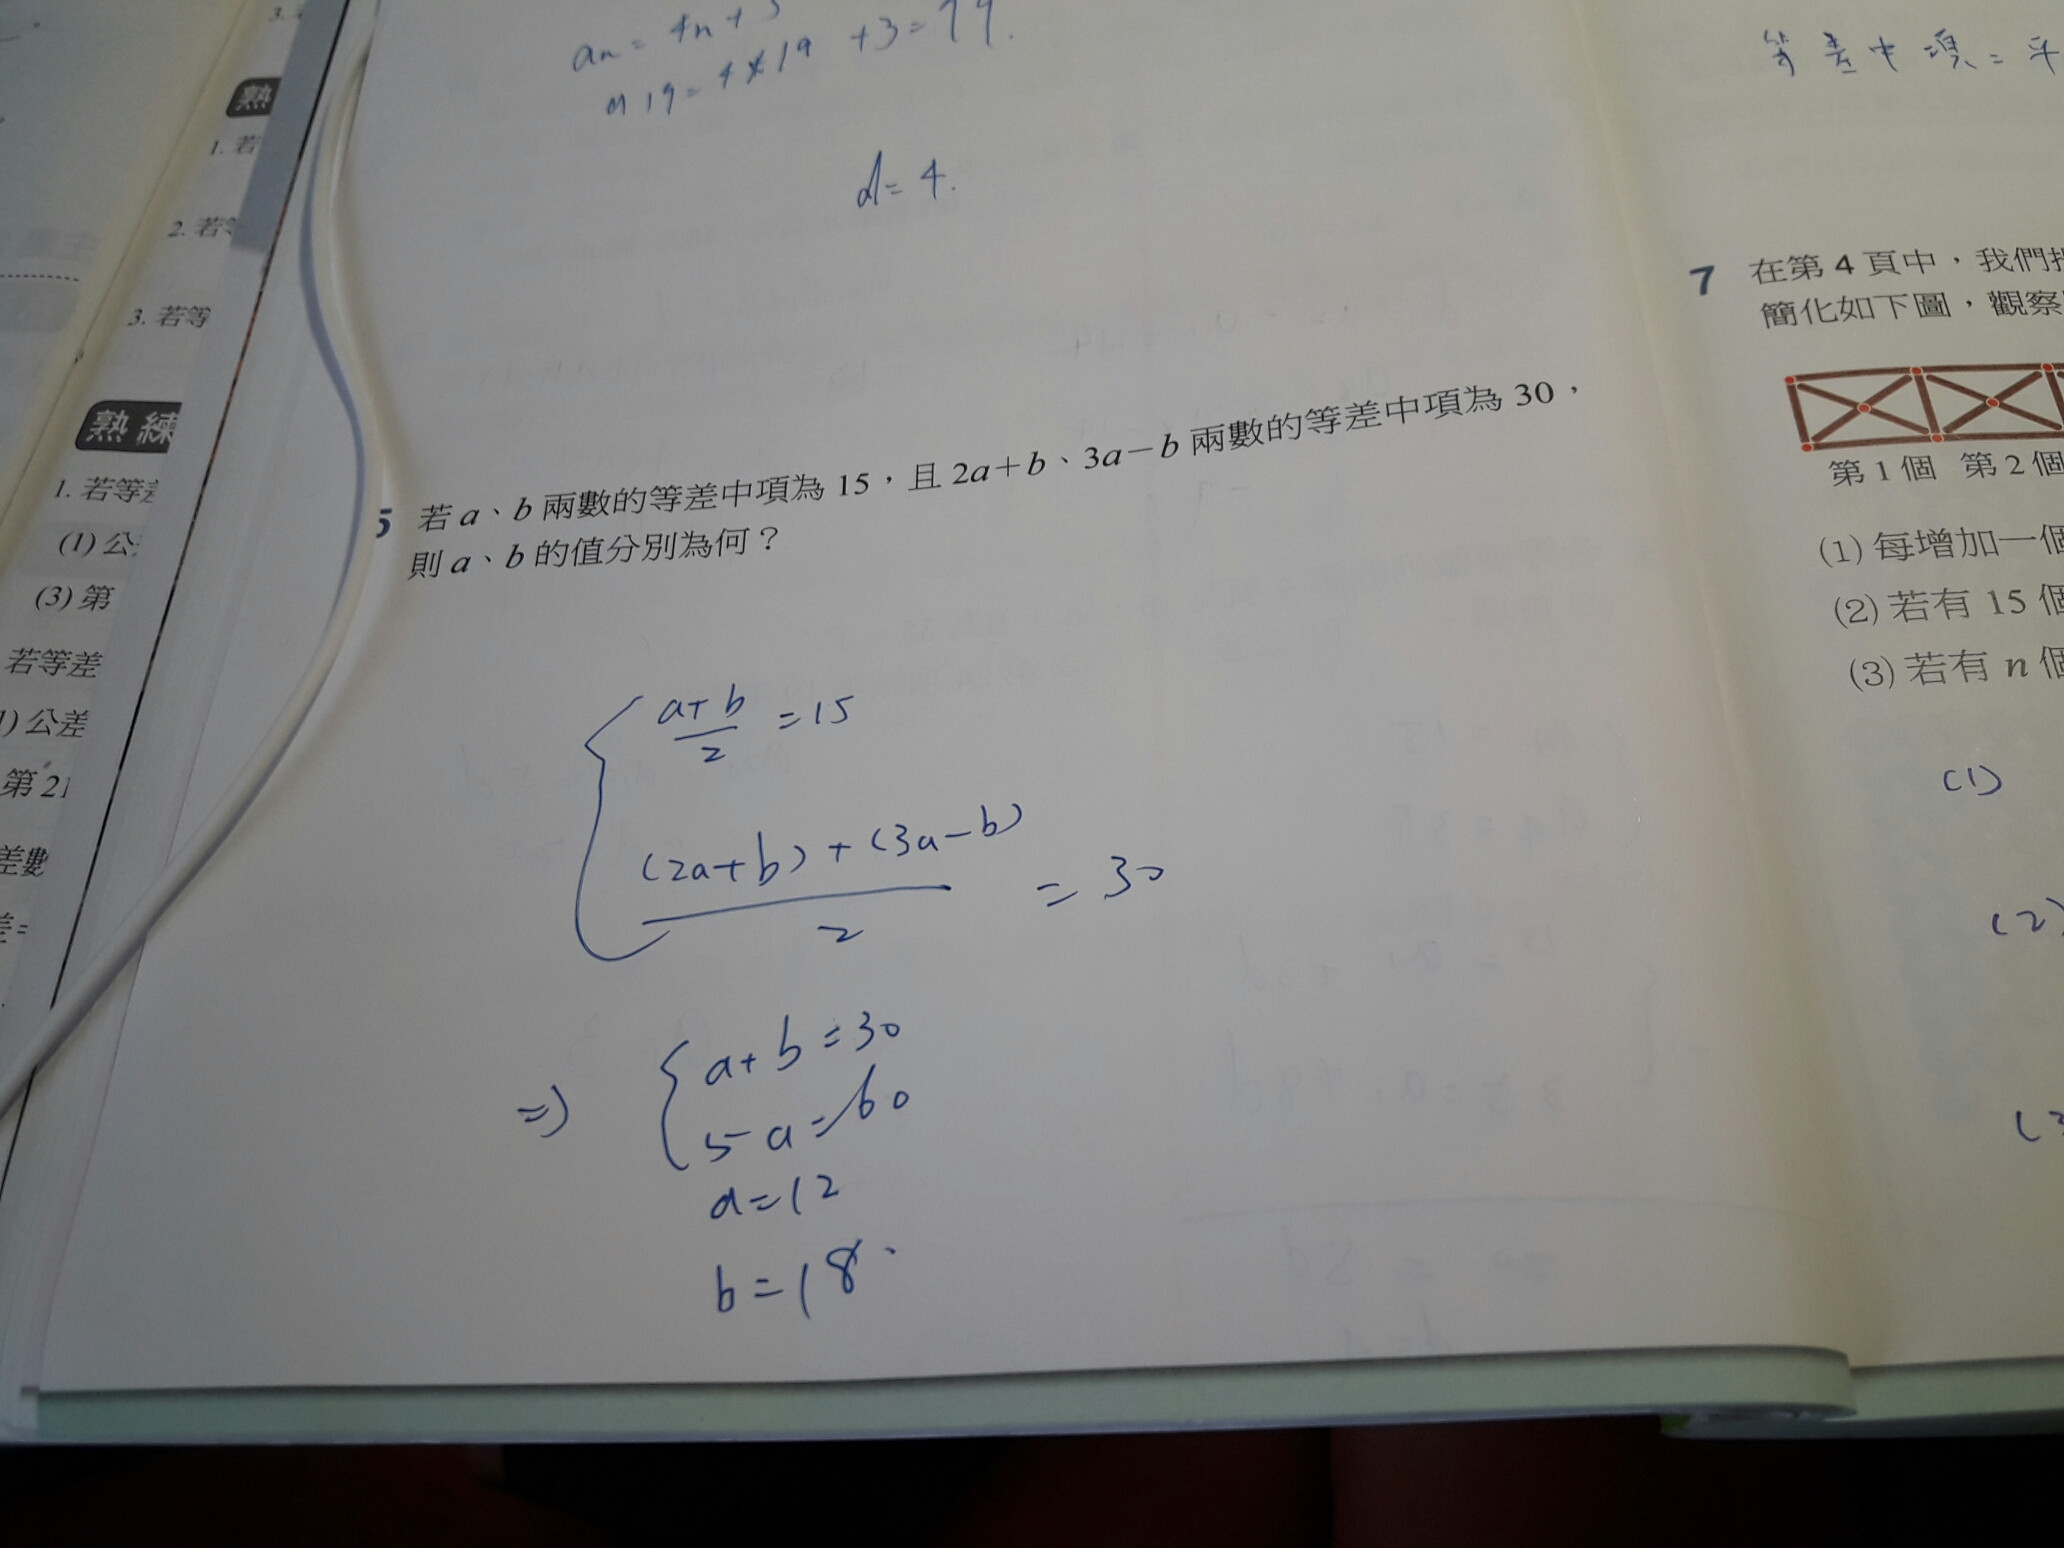 3.
熟
1. 若
2. 若等
3. 若等
熟 練
1. 若等差
(1) 公
(3) 第
若等差
1) 公差
第 21
差數
差=
an = 4n + 3
a19 = 4×19 + 3 = 79.
d = 4.
5 若 a、b 兩數的等差中項為 15,且 2a+b、3a−b 兩數的等差中項為 30,
則 a、b 的值分別為何?
a+b/2 = 15
(2a+b)+(3a−b)/2 = 30
=> { a+b=30
5a=60
a=12
b=18.
等差中項=平
7 在第 4 頁中,我們
簡化如下圖,觀察
第 1 個 第 2 個
(1) 每增加一個
(2) 若有 15 個
(3) 若有 n 個
(1)
(2)
(3